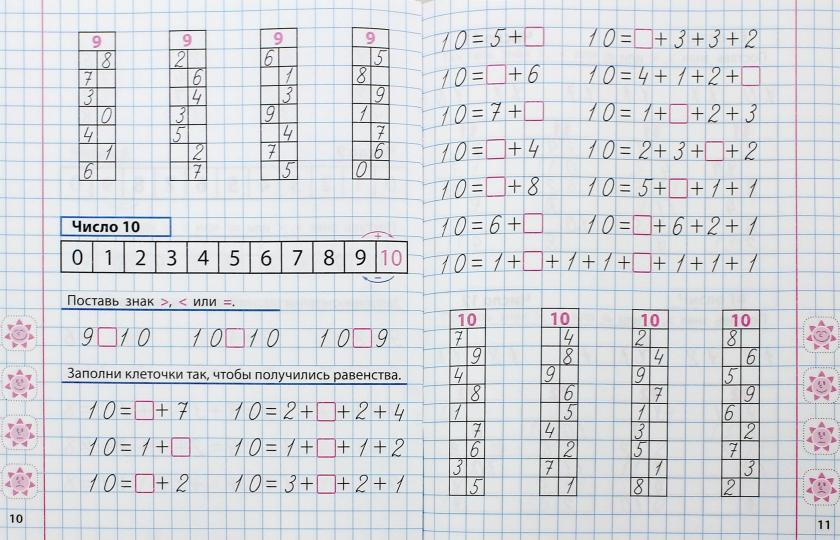 9 9 9 9
8 2 6 5
7 6 1 8
3 4 3 9
0 3 9 1
4 5 4 7
1 2 7 6
6 7 5 0
Число 10
+
0 1 2 3 4 5 6 7 8 9 10
−
Поставь знак >, < или =.
9 □ 10 10 □ 10 10 □ 9
Заполни клеточки так, чтобы получились равенства.
10 = □ + 7 10 = 2 + □ + 2 + 4
10 = 1 + □ 10 = 1 + □ + 1 + 2
10 = □ + 2 10 = 3 + □ + 2 + 1
10
10 = 5 + □ 10 = □ + 3 + 3 + 2
10 = □ + 6 10 = 4 + 1 + 2 + □
10 = 7 + □ 10 = 1 + □ + 2 + 3
10 = □ + 4 10 = 2 + 3 + □ + 2
10 = □ + 8 10 = 5 + □ + 1 + 1
10 = 6 + □ 10 = □ + 6 + 2 + 1
10 = 1 + □ + 1 + 1 + □ + 1 + 1 + 1
10 10 10 10
7 4 2 8
9 8 4 6
4 9 9 5
8 6 7 9
1 5 1 6
7 4 3 2
6 2 5 7
3 7 1 3
5 1 8 2
11